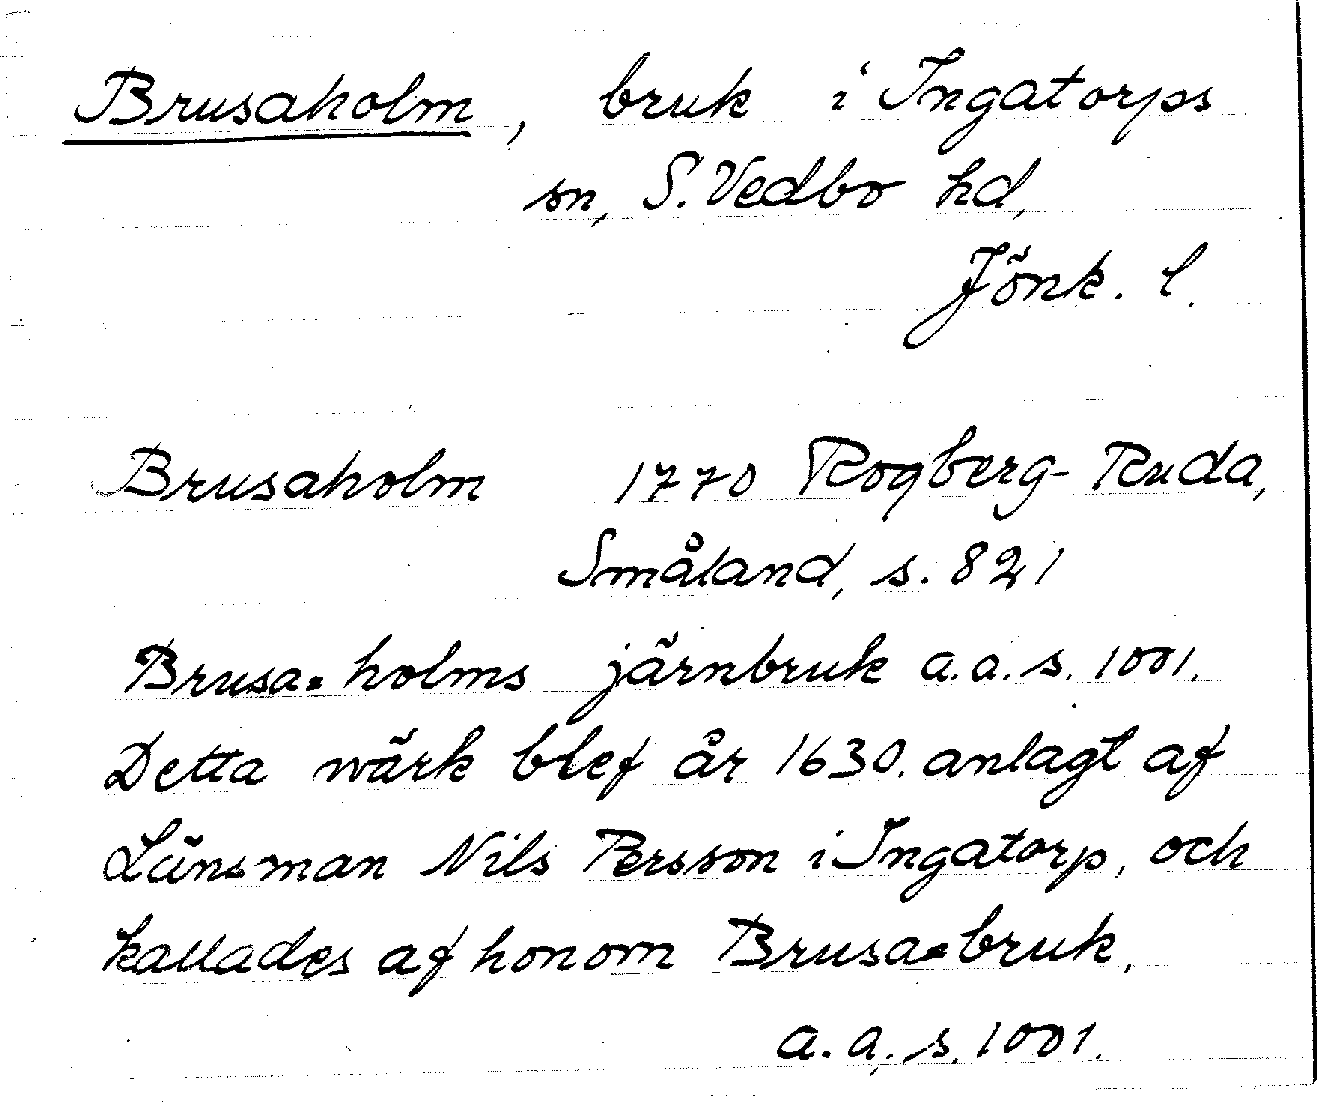 Brusaholm, bruk i Ingatorps
sn, S. Vedbo hd,
Jönk. l.
Brusaholm 1770 Rogberg-Ruda,
Småland, s. 821
Brusa=holms järnbruk a.a. s. 1001.
Detta wärk blef år 1630. anlagt af
Länsman Nils Persson i Ingatorp, och
kallades af honom Brusa=bruk.
a.a. s. 1001.